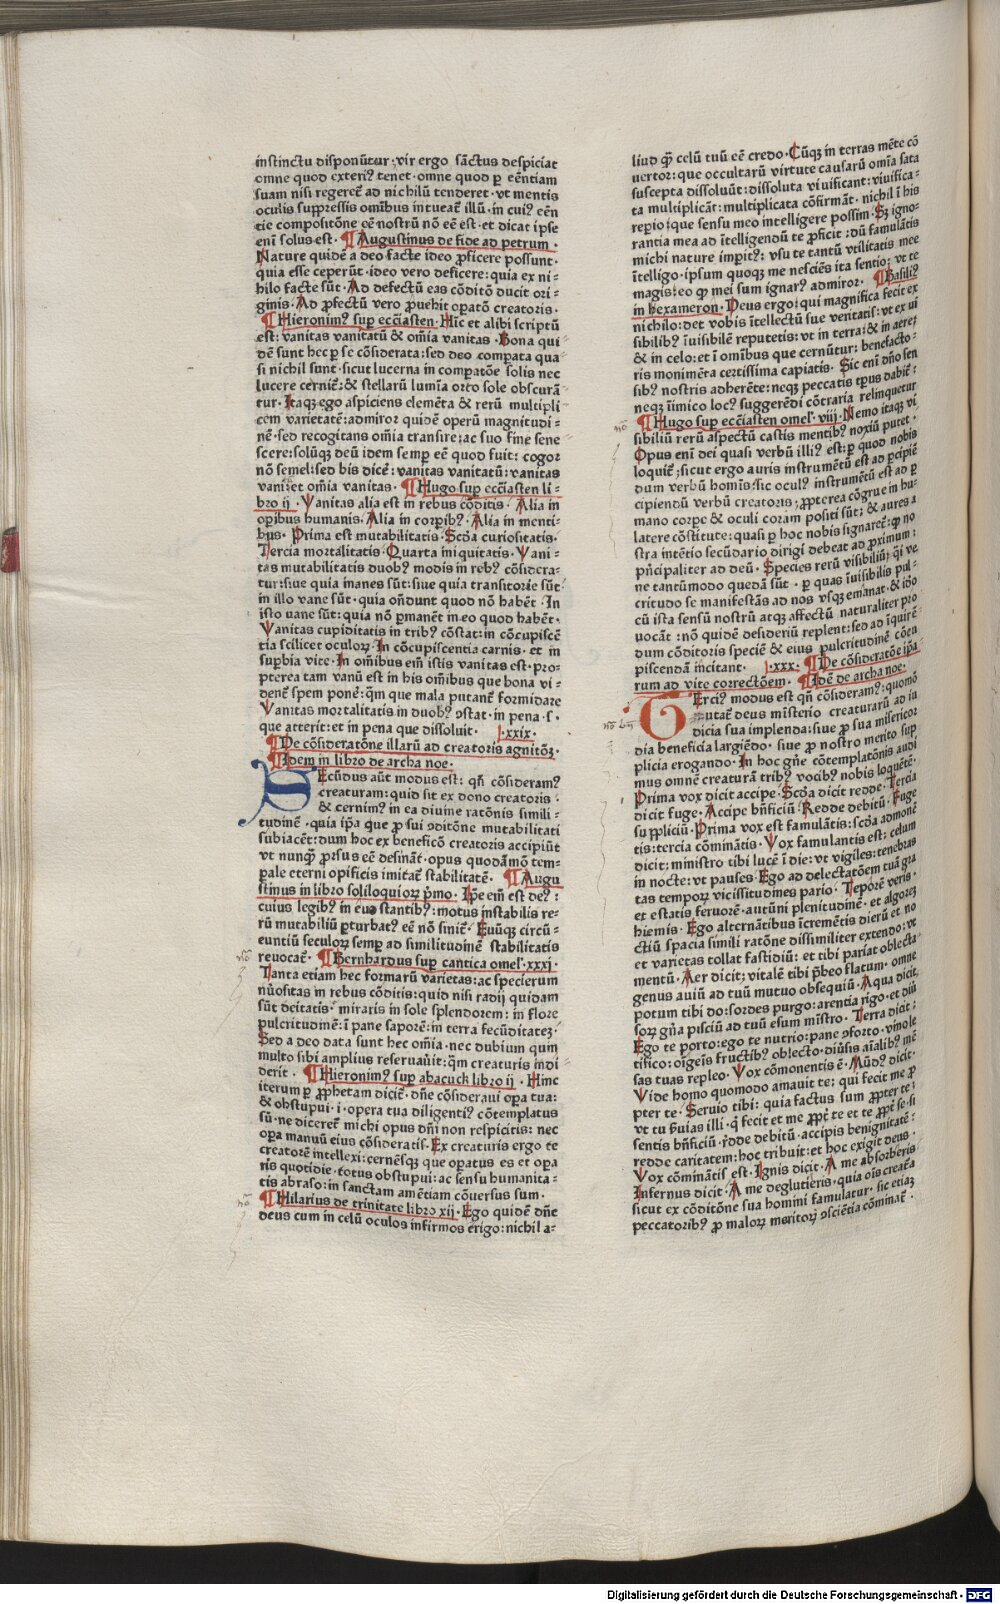 instinctu disponūtur : vir ergo sāctus despiciat
omne quod exteriꝰ tenet · omne quod ꝑ eēntiam
suam nisi regeret̄ ad nichilū tenderet · vt mentis
oculis suppressis omībus intueat̄ illū · in cuiꝰ eēn
tie compositōne eē nostrū nō eē est · et dicat ipse
enī solus est · ¶ Augustinus de fide ad petrum ·
Nature quidē a deo facte ideo ꝓficere possunt ·
quia esse ceperūt · ideo vero deficere : quia ex ni-
hilo facte sūt · Ad defectū eas cōditō ducit ori-
ginis · Ad ꝓfectū vero ꝓuehit opatō creatoris ·
¶ Hieronimꝰ suꝑ eccīasten · Hīc et alibi scriptū
est : vanitas vanitatū & om̄ia vanitas · Bona qui
dē sunt hec ꝑ se cōsiderata : sed deo comꝑata qua-
si nichil sunt · sicut lucerna in comꝑatōe solis nec
lucere cernit̄ : & stellarū lumīa orto sole obscurā
tur · Itaqꝫ ego aspiciens elemēta & rerū multipli
cem varietatē : admiror quidē operū magnitudi-
nē · sed recogitans om̄ia transire : ac suo fine sene-
scere : solūqꝫ deū idem semꝑ eē quod fuit : cogor
nō semel : sed bis dicē : vanitas vanitatū : vanitas
vani : et om̄ia vanitas · ¶ Hugo suꝑ eccīasten li-
bro ij · Vanitas alia est in rebus cōditis · Alia in
oꝑibus humanis · Alia in corꝑibꝰ · Alia in menti-
bus · Prima est mutabilitatis · Scd̄a curiositatis ·
Tercia mortalitatis · Quarta iniquitatis · Vani-
tas mutabilitatis duobꝰ modis in rebꝰ cōsidera-
tur : siue quia inanes sūt : siue quia transitorie sūt ·
in illo vane sūt · quia on̄dunt quod nō habēt · In
isto vane sūt : quia nō ꝑmanēt in eo quod habēt ·
Vanitas cupiditatis in tribꝰ cōstat : in cōcupiscē
tia scilicet oculoꝝ · In cōcupiscentia carnis · et in
suꝑbia vite · In om̄ibus em̄ istis vanitas est · pro-
pterea tam vanū est in his om̄ibus que bona vi-
dent̄ spem ponē : q̄m que mala putant̄ formidare
Vanitas mortalitatis in duobꝰ ꝯstat · in pena · s ·
que atterit : et in pena que dissoluit · |·xxix·
¶ De cōsideratōne illarū ad creatoris agnitōꝫ ·
¶ Idem in libro de archa noe ·
SEcūdus aūt modus est : qn̄ cōsideramꝰ
creaturam : quid sit ex dono creatoris ·
& cernimꝰ in ea diuine ratōnis simili-
tudinē · quia ip̄a que ꝓ sui ꝯditōne mutabilitati
subiacēt : dum hoc ex beneficō creatoris accipiūt
vt nunqꝫ ꝓrsus eē desināt · opus quodāmō tem-
pale eterni opificis imitat̄ stabilitatē · ¶ Augu
stinus in libro soliloquioꝝ p̄mo · Ip̄e em̄ est deꝰ :
cuius legibꝰ in euo stantibꝰ : motus instabilis re-
rū mutabiliū ꝑturbatꝰ eē nō sinit̄ · Euūqꝫ circū-
euntiū seculoꝝ semꝑ ad similitudinē stabilitatis
reuocat̄ · ¶ Bernhardus suꝑ cantica omel' ·xxxi·
Tanta etiam hec formarū varietas : ac specierum
nūositas in rebus cōditis : quid nisi radij quidam
sūt deitatis · miraris in sole splendorem : in flore
pulcritudinē : ī pane saporē : in terra fecūditateꝫ ·
Sed a deo data sunt hec om̄ia · nec dubium quin
multo sibi amplius reseruauīt : q̄m creaturis indi-
derit · ¶ Hieronimꝰ suꝑ abacuch libro ij · Hinc
iterum ꝑ ꝓphetam dicit̄ · dn̄e cōsideraui oꝑa tua :
& obstupui · i · opera tua diligentiꝰ cōtemplatus
sū · ne diceret̄ michi opus dn̄i non respicitis : nec
oꝑa manuū eius cōsideratis · Ex creaturis ergo te
creatorē intellexi : cernēsqꝫ que oꝑatus es et oꝑa
ris quotidie · totus obstupui : ac sensu humanita-
tis abraso : in sanctam amētiam cōuersus sum ·
¶ Hilarius de trinitate libro xij · Ego quidē dn̄e
deus cum in celū oculos infirmos erigo : nichil a-
liud q̄ꝫ celū tuū eē credo · Cūqꝫ in terras mēte cō
uertor : que occultarū virtute causarū om̄ia sata
suscepta dissoluūt : dissoluta viuificant : viuifica-
ta multiplicāt : multiplicata cōfirmāt · nichil ī his
repio : que sensu meo intelligere possim · Sꝫ igno-
rantia mea ad ītelligendū te ꝓficit : dū famulātis
michi nature imꝑit̄ : vsu te tantū vtilitatis mee
ītelligo · ipsum quoqꝫ me nesciēs ita sentio : vt te
magis : eo qꝫ mei sum ignarꝰ admiror · ¶ Basiliꝰ
in hexameron · Deus ergo : qui magnifica fecit ex
nichilo : det vobis ītellectū sue veritatis : vt ex vi
sibilibꝰ īuisibilē reputetis : vt in terra : & in aere :
& in celo : et ī omībus que cernūtur : benefacto-
ris monimēta certissima capiatis · Sic enī dn̄o sen
sibꝰ nostris adherēte : neqꝫ peccatis tꝑus dabit̄ :
neqꝫ īimico locꝰ suggerēdi cōtraria relinquetur
¶ Hugo suꝑ eccīasten omel' viij · Nemo itaqꝫ vi
sibiliū rerū aspectū castis mentibꝰ noxiū putet ·
Opus enī dei quasi verbū illiꝰ est : ꝑ quod nobis
loquit̄ ; sicut ergo auris instrumētū est ad ꝑcipiē
dum verbū homīs : sic oculꝰ instrumētū est ad ꝑ
cipiendū verbū creatoris · ꝓpterea cōgrue in hu-
mano corꝑe & oculi coram positi sūt : & aures a
latere cōstitute : quasi ꝑ hoc nobis signaret̄ : qꝫ no
stra intētio secūdario dirigi debeat ad ꝓximum :
p̄ncipaliter ad deū · Species rerū visibiliū : q̄i ve
ne tantūmodo quedā sūt · ꝑ quas īuisibilis pul-
critudo se manifestās ad nos vsqꝫ emanat · & id̄o
cū ista sensū nostrū atqꝫ affectū naturaliter pro
uocāt : nō quidē desideriū replent : sed ad īquirē-
dum cōditoris speciē & eius pulcritudinē cōcu
piscendā incitant · |·xxx· ¶ De cōsideratōe ip̄a
rum ad vite correctōem · ¶ Idē de archa noe ·
TErciꝰ modus est qn̄ cōsideramꝰ : quomō
ꝯmutat̄ deus mīsterio creaturarū ad iu
dicia sua implenda : siue ꝓ sua misericor
dia beneficia largiēdo · siue ꝓ nostro merito sup
plicia erogando · In hoc gn̄e cōtemplatōnis audi
mus omnē creaturā tribꝰ vocibꝰ nobis loquētē ·
Prima vox dicit accipe · Scd̄a dicit redde · Tercia
dicit fuge · Accipe bn̄ficiū · Redde debitū · Fuge
suppliciū · Prima vox est famulātis : scd̄a admonē
tis : tercia cōminātis · Vox famulantis est ; celum
dicit : ministro tibi lucē ī die : vt vigiles : tenebras
in nocte : vt pauses · Ego ad delectatōem tuā gra
tas temꝑoꝝ vicissitudines pario · Teporē veris ·
et estatis feruorē · autūni plenitudinē · et algoreꝫ
hiemis · Ego alternātibus īcremētis dierū et no
ctiū spacia simili ratōne dissimiliter extendo : vt
et varietas tollat fastidiū : et tibi pariat oblecta-
mentū · Aer dicit ; vitalē tibi p̄beo flatum · omne
genus auiū ad tuū mutuo obsequiū · Aqua dicit
potum tibi do : sordes purgo : arentia rigo · et diū
soꝝ gn̄a pisciū ad tuū esum mīstro · Terra dicit :
Ego te porto : ego te nutrio : pane ꝯforto · vīnole
tifico : oīgeīs fructibꝰ oblecto · diūsis aīalibꝰ mē
sas tuas repleo · Vox cōmonentis ē · Mūdꝰ dicit ·
Vide homo quomodo amauit te ; qui fecit me ꝓ
pter te · Seruio tibi : quia factus sum ꝓpter te :
vt tu ſ̄uias illi · q̄ fecit et me ꝓpt̄ te et te ꝓpt̄ se · si
sentis bn̄ficiū · r̄dde debitū · accipis benignitatē :
redde caritatem : hoc tribuit : et hoc exigit deus ·
Vox cōminātis est · Ignis dicit · A me absorberis
Infernus dicit · A me deglutieris · quia oīs creat̄a
sicut ex cōditōne sua homini famulatur · sic etiaꝫ
peccatoribꝰ ꝓ maloꝝ meritoꝝ ꝯscīētia cōminat̄ ·
Digitalisierung gefördert durch die Deutsche Forschungsgemeinschaft · DFG